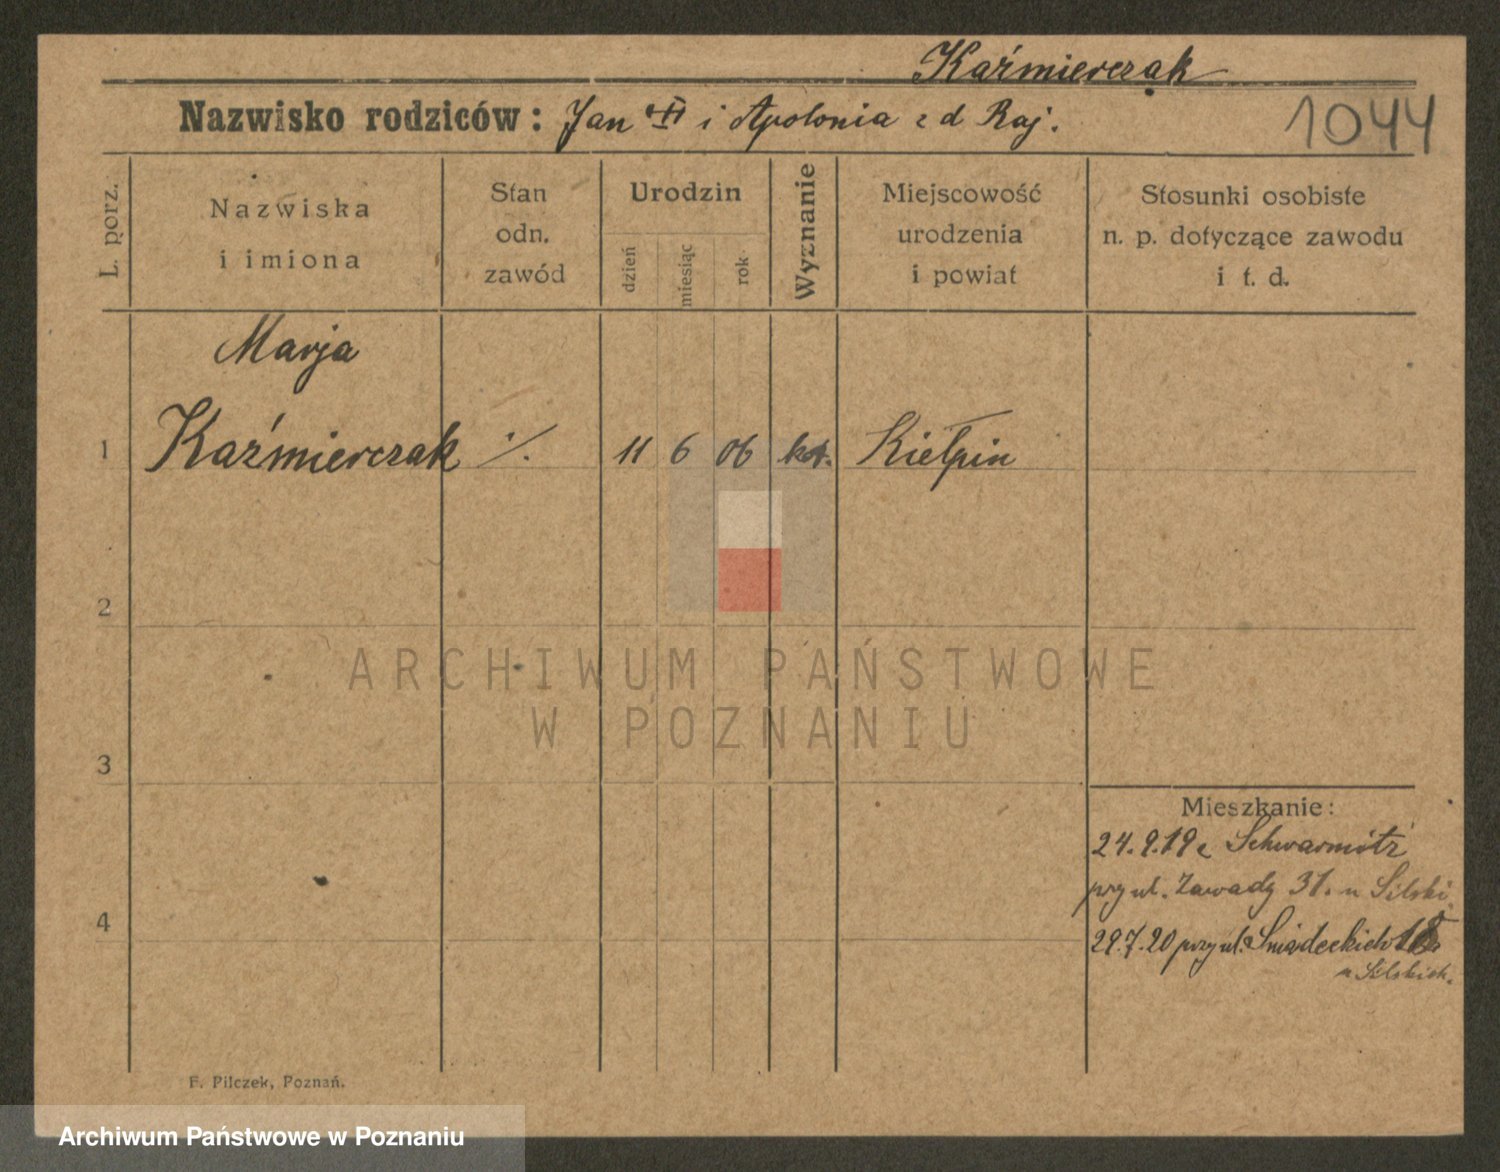 Kaźmierczak
Nazwisko rodziców: Jan i Apolonia z d Raj.
1044
L. porz.
Nazwiska
i imiona
Stan
odn.
zawód
Urodzin
dzień
miesiąc
rok
Wyznanie
Miejscowość
urodzenia
i powiat
Stosunki osobiste
n. p. dotyczące zawodu
i t. d.
Marja
1 Kaźmierczak ·/. 11 6 06 kat. Kiełpin
2
ARCHIWUM PAŃSTWOWE
W POZNANIU
3
Mieszkanie:
24.9.19 z
przy ul. Zawady 31. u
4
29.7.20 przy ul. Śniadeckich 18
F. Pilczek, Poznań.
Archiwum Państwowe w Poznaniu